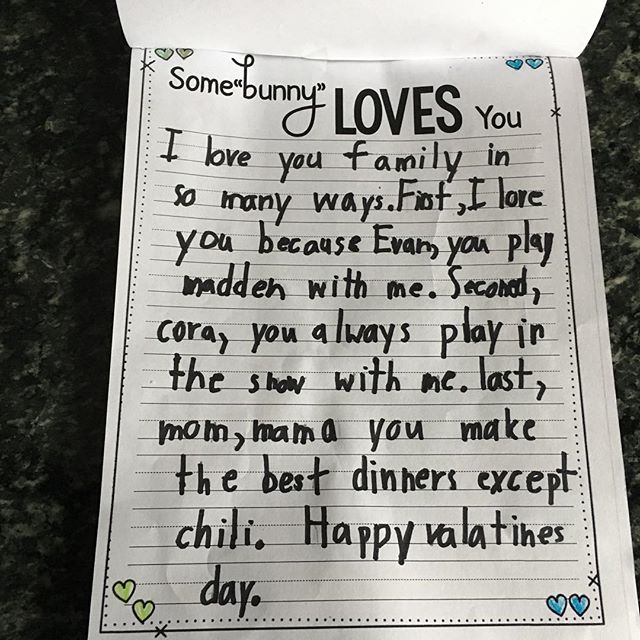 Some "bunny" LOVES You
I love you family in
so many ways. First, I love
you because Evan, you play
madden with me. Second,
cora, you always play in
the snow with me. last,
mom, mama you make
the best dinners except
chili. Happy valatines
day.